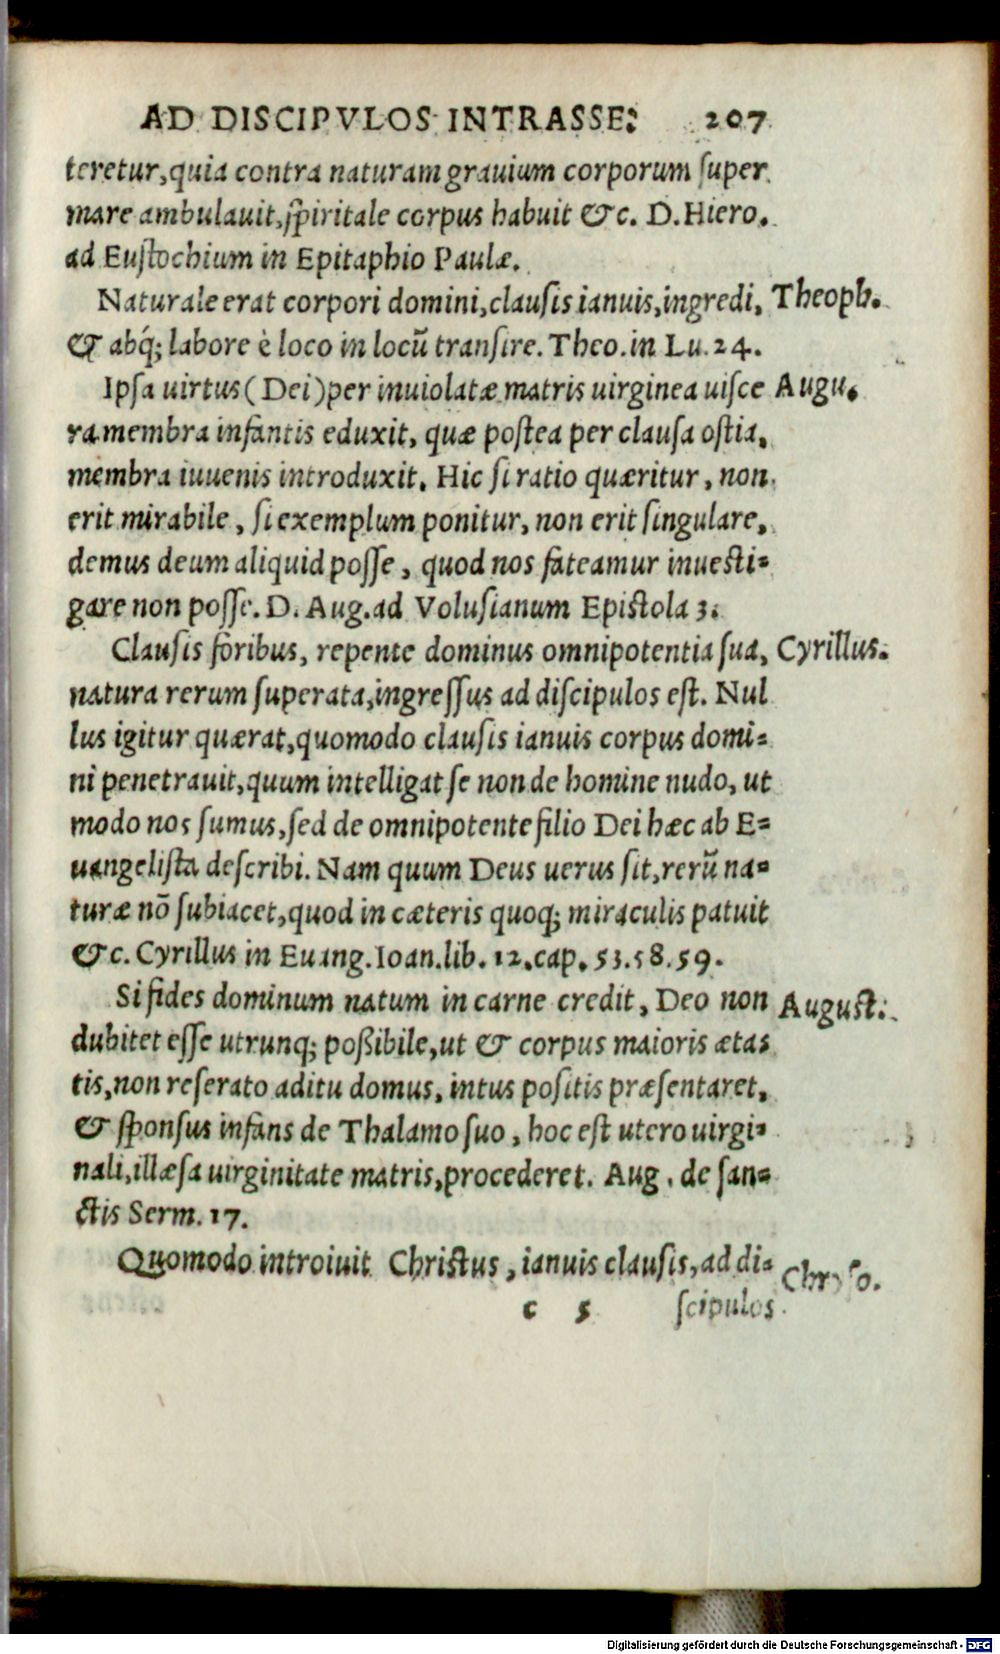 AD DISCIPVLOS INTRASSE: 207
teretur, quia contra naturam grauium corporum super
mare ambulauit, spiritale corpus habuit &c. D. Hiero.
ad Eustochium in Epitaphio Paulæ.
Naturale erat corpori domini, clausis ianuis, ingredi, Theoph.
& absq́; labore è loco in locū transire. Theo. in Lu. 24.
Ipsa uirtus (Dei) per inuiolatæ matris uirginea uisce Augu.
ra membra infantis eduxit, quæ postea per clausa ostia,
membra iuuenis introduxit. Hic si ratio quæritur, non
erit mirabile, si exemplum ponitur, non erit singulare,
demus deum aliquid posse, quod nos fateamur inuesti-
gare non posse. D. Aug. ad Volusianum Epistola 3.
Clausis foribus, repente dominus omnipotentia sua, Cyrillus.
natura rerum superata, ingressus ad discipulos est. Nul
lus igitur quærat, quomodo clausis ianuis corpus domi-
ni penetrauit, quum intelligat se non de homine nudo, ut
modo nos sumus, sed de omnipotente filio Dei hæc ab E-
uangelista describi. Nam quum Deus uerus sit, rerū na-
turæ nō subiacet, quod in cæteris quoq; miraculis patuit
&c. Cyrillus in Euang. Ioan. lib. 12. cap. 53. 58. 59.
Si fides dominum natum in carne credit, Deo non August.
dubitet esse utrunq; poßibile, ut & corpus maioris ætas
tis, non reserato aditu domus, intus positis præsentaret,
& sponsus infans de Thalamo suo, hoc est utero uirgi-
nali, illæsa uirginitate matris, procederet. Aug. de san-
ctis Serm. 17.
Quomodo introiuit Christus, ianuis clausis, ad di- Chryso.
c 5 scipulos
Digitalisierung gefördert durch die Deutsche Forschungsgemeinschaft - DFG